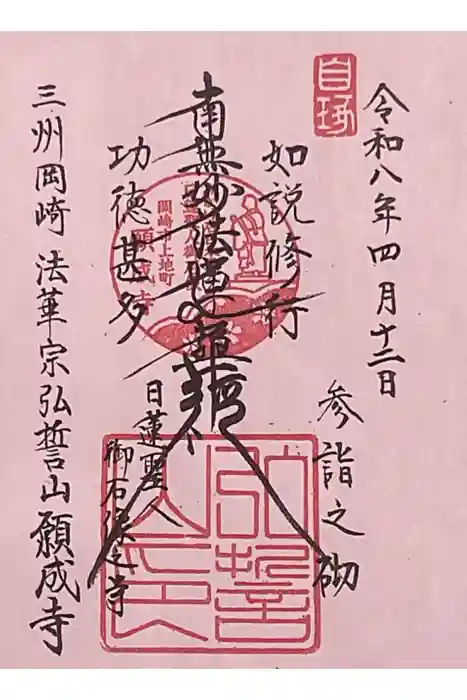 令和八年四月十二日
参詣之砌
如説修行
南無妙法蓮華経
功徳甚多
日蓮聖人
御石 之寺
三州岡崎 法華宗弘誓山願成寺
岡崎市上地町
願成寺
弘誓